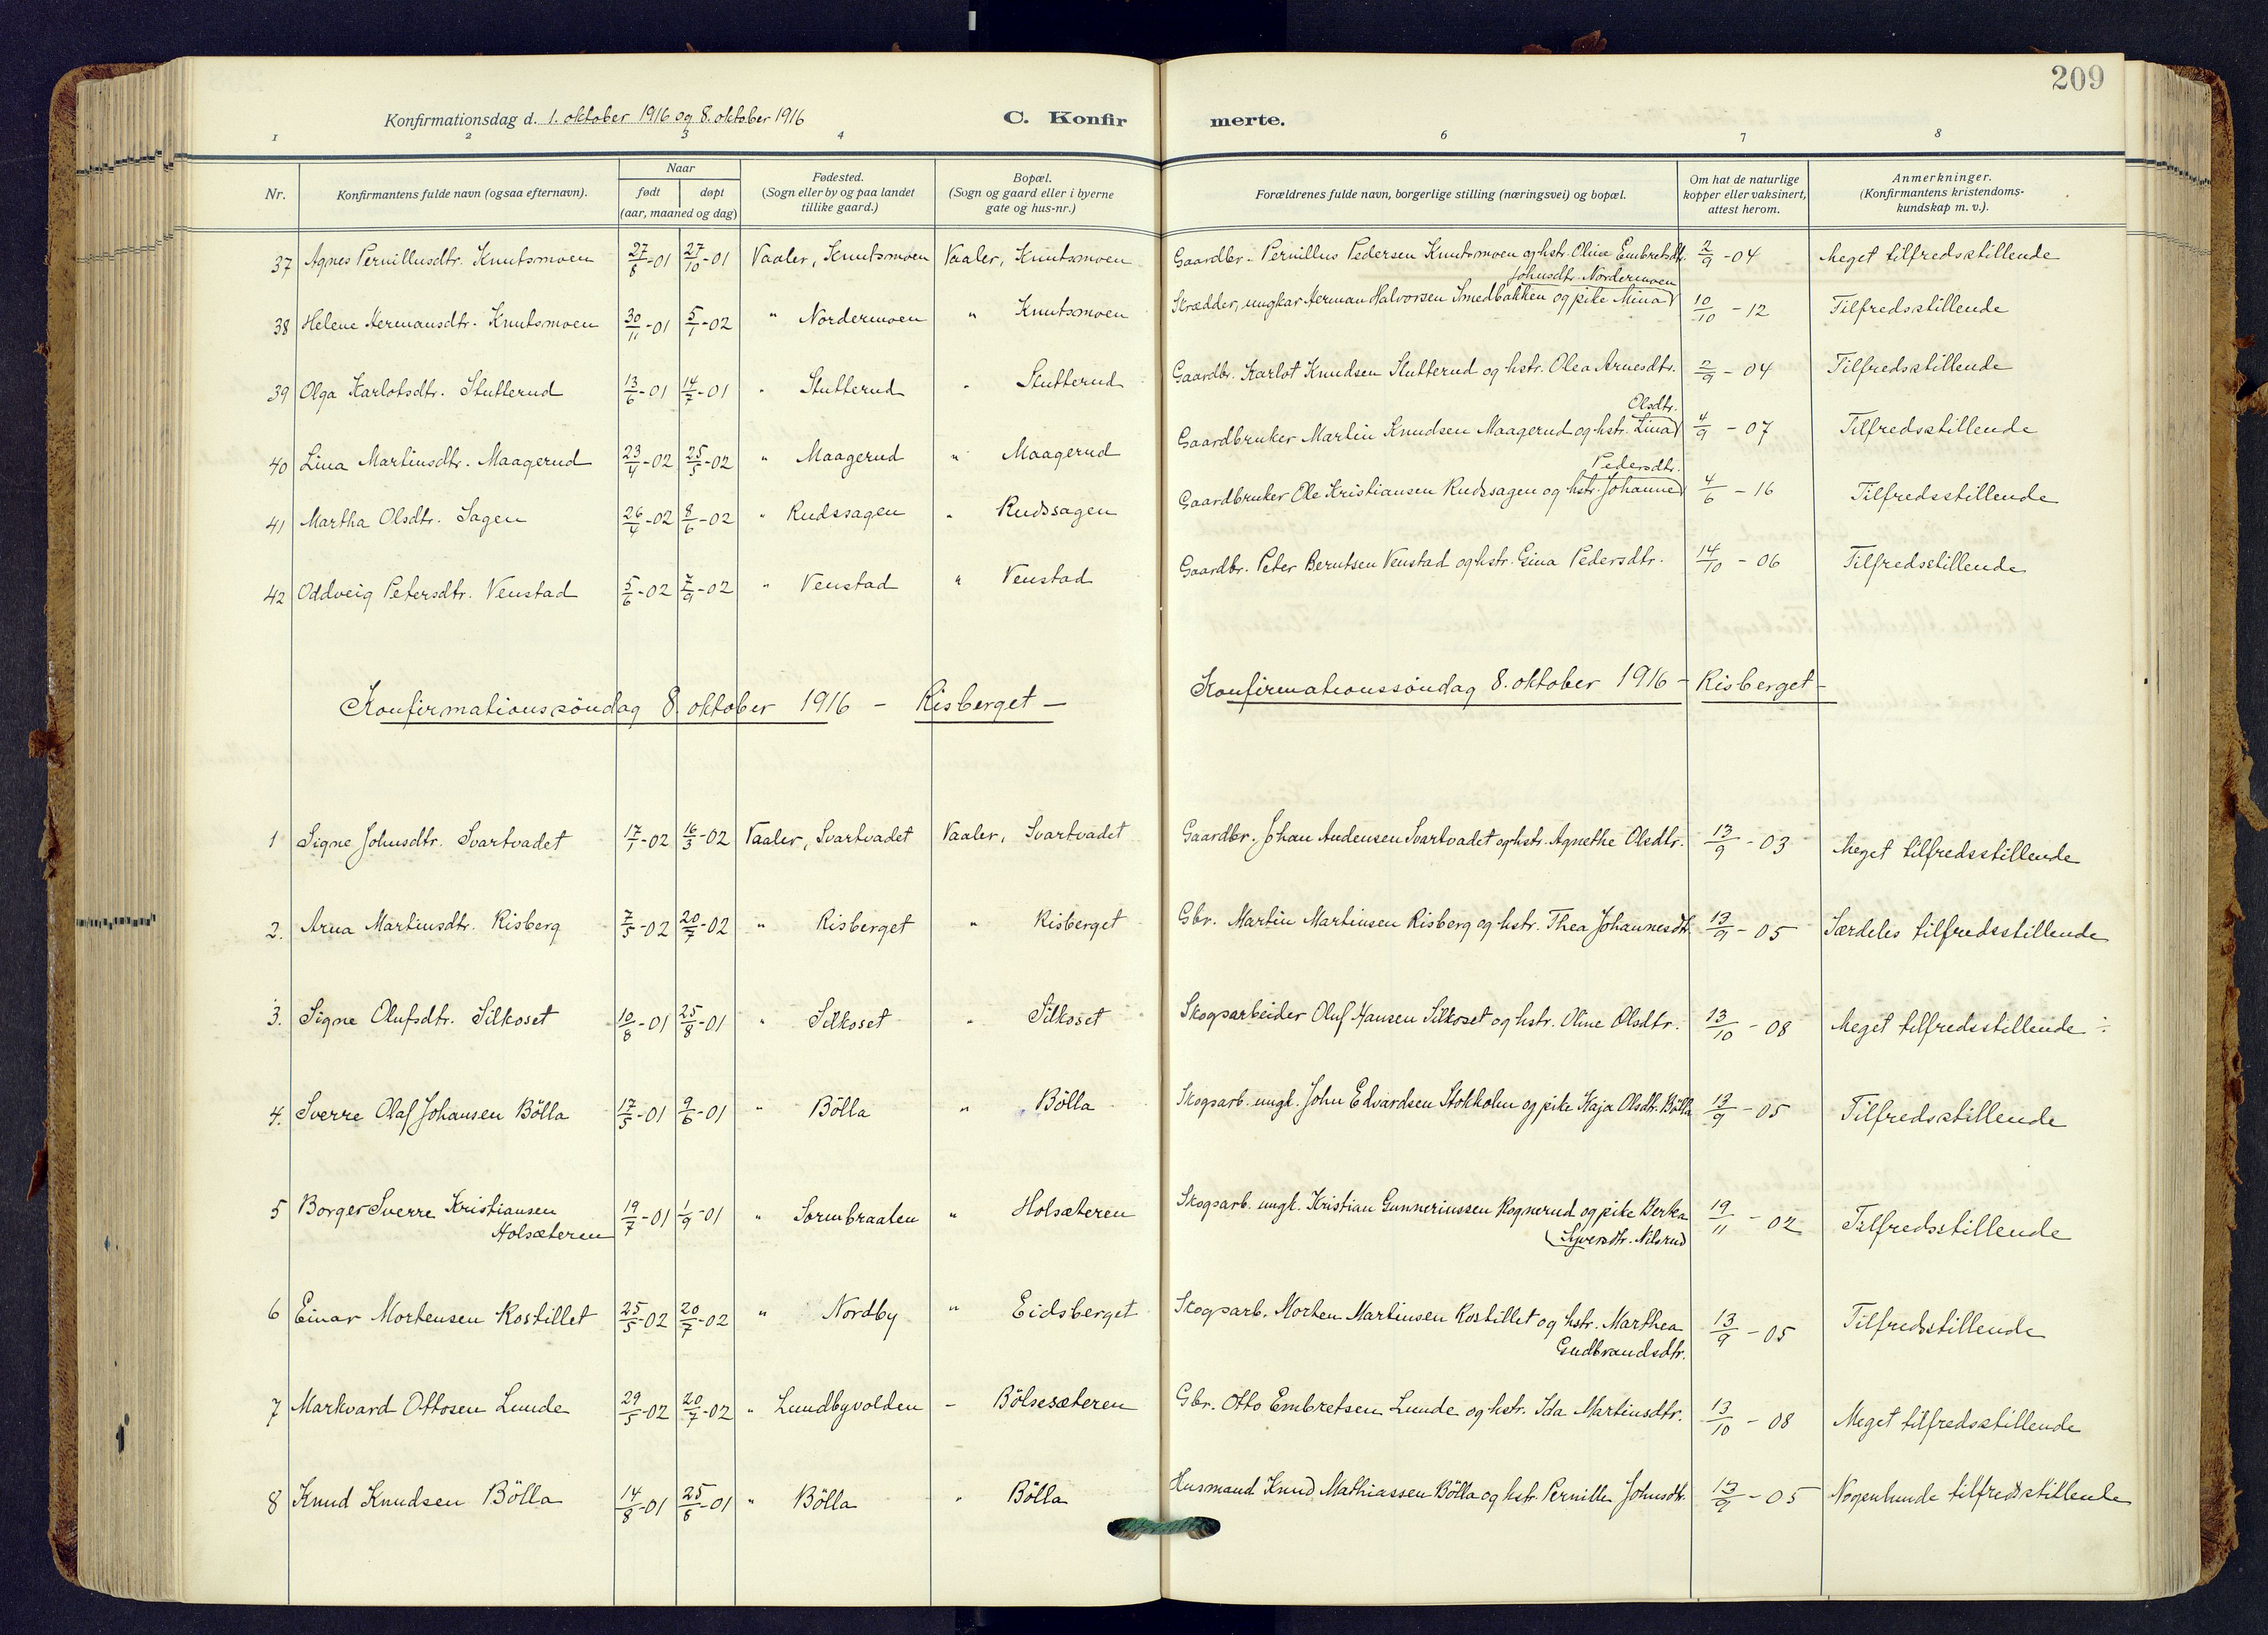 209
Konfirmationsdag d. 1. oktober 1916 og 8. oktober 1916
C. Konfirmerte.
1 2 3 4 6 7 8
Nr. Konfirmantens fulde navn (ogsaa efternavn). Naar født døpt (aar, maaned og dag) Fødested. (Sogn eller by og paa landet tillike gaard.) Bopæl. (Sogn og gaard eller i byerne gate og hus-nr.) Forældrenes fulde navn, borgerlige stilling (næringsvei) og bopæl. Om hat de naturlige kopper eller vaksinert, attest herom. Anmerkninger. (Konfirmantens kristendoms-kundskap m. v.).
37 Agnes Pernillusdtr. Knutsmoen 27/8-01 27/10-01 Vaaler, Knutsmoen Vaaler, Knutsmoen Gaardbr. Pernillus Pedersen Knutsmoen og hstr. Oline Embretsdtr. 2/9-04 Meget tilfredsstillende
38 Helene Hermansdtr. Knutsmoen 30/11-01 5/1-02 " Nordermoen " Knutsmoen Skrædder, ungkar Herman Halvorsen Smedbakken og pike Mina Johnsdtr. Nordermoen 10/10-12 Tilfredsstillende
39 Olga Karlotsdtr. Slutterud 13/6-01 14/7-01 " Slutterud " Slutterud Gaardbr. Karlot Knudsen Slutterud og hstr. Olea Arnesdtr. 2/9-04 Tilfredsstillende
40 Lina Martinsdtr. Maagerud 23/4-02 25/5-02 " Maagerud " Maagerud Gaardbruker Martin Knudsen Maagerud og hstr. Lina Olsdtr. 4/9-07 Tilfredsstillende
41 Martha Olsdtr. Sagen 26/4-02 8/6-02 " Rudssagen " Rudssagen Gaardbruker Ole Kristiansen Rudssagen og hstr. Johanne Pedersdtr. 4/6-16 Tilfredsstillende
42 Oddveig Petersdtr. Venstad 5/6-02 7/9-02 " Venstad " Venstad Gaardbr. Peter Berntsen Venstad og hstr. Gina Pedersdtr. 14/10-06 Tilfredsstillende
Konfirmationssöndag 8. oktober 1916 - Risberget - Konfirmationssöndag 8. oktober 1916 - Risberget -
1 Signe Johnsdtr. Svartvadet 17/1-02 16/3-02 Vaaler, Svartvadet Vaaler, Svartvadet Gaardbr. Johan Andensen Svartvadet og hstr. Agnethe Olsdtr. 13/9-03 Meget tilfredsstillende
2. Arna Martinsdtr. Risberg 7/5-02 20/7-02 " Risberget " Risberget Gbr. Martin Martinsen Risberg og hstr. Thea Johannesdtr. 13/9-05 Særdeles tilfredsstillende
3. Signe Olufsdtr. Silkoset 10/8-01 25/8-01 " Silkoset " Silkoset Skogsarbeider Oluf Hansen Silkoset og hstr. Oline Olsdtr. 13/10-08 Meget tilfredsstillende ÷
4. Sverre Olaf Johansen Bölla 17/5-01 9/6-01 " Bölla " Bölla Skogsarb. ungk. John Edvardsen Stokholm og pike Kaja Olsdtr. Bölla 13/9-05 Tilfredsstillende
5 Borger Sverre Kristiansen Holsæteren 19/7-01 1/9-01 " Sormbraaten " Holsæteren Skogsarb. ungk. Kristian Gunneriussen Rognerud og pike Berka Syversdtr. Nilsrud 19/11-02 Tilfredsstillende
6 Einar Mortensen Rostillet 25/5-02 20/7-02 " Nordby " Eidsberget Skogsarb. Morten Martinsen Rostillet og hstr. Marthea Gudbrandsdtr. 13/9-05 Tilfredsstillende
7 Markvard Ottosen Lunde 29/5-02 20/7-02 " Lundbyvolden - Bölsesæteren Gbr. Otto Embretsen Lunde og hstr. Ida Martinsdtr. 13/10-08 Meget tilfredsstillende
8 Knud Knudsen Bölla 14/8-01 25/8-01 " Bölla " Bölla Husmand Knud Mathiassen Bölla og hstr. Pernille Johnsdtr. 13/9-05 Nogenlunde tilfredsstillende